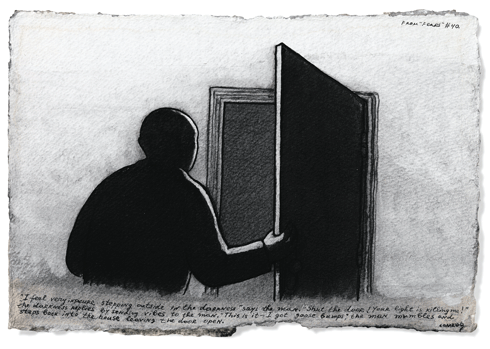 From "Fears" #40
"I feel very unsure, stepping outside in the darkness" says the man. "Shut the door! Your light is killing me!"
the darkness replies by sending vibes to the man. "This is it - I got goose bumps", the man mumbles and
steps back into the house leaving the door open.